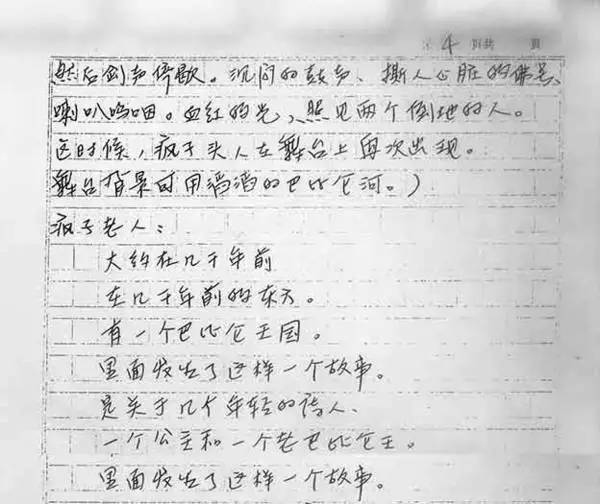 第 4 页共 页
然后剑声停歇。沉闷的鼓声、撕人心脏的佛号、
喇叭呜咽。血红的光、照见两个倒地的人。
这时候，疯子头人在舞台上再次出现。
舞台背景可用滔滔的巴比仑河。）
疯子老人：
大约在几千年前
在几千年前的东方。
有一个巴比仑王国。
里面发生了这样一个故事。
是关于几个年轻的诗人、
一个公主和一个老巴比仑王。
里面发生了这样一个故事。